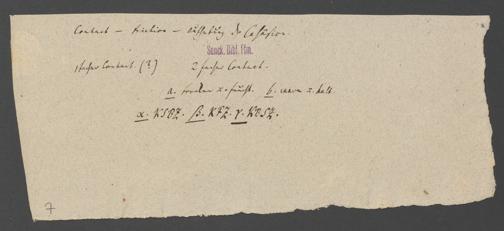 Contact – Friction – Aufhebung der Cohäsion.
Senck. Bibl. Ffm.
1facher Contact. (?) 2facher Contact.
a. trocken u. feucht. b. warm u. kalt.
α. KSOZ. β. KFZ. γ. KOSZ.
7